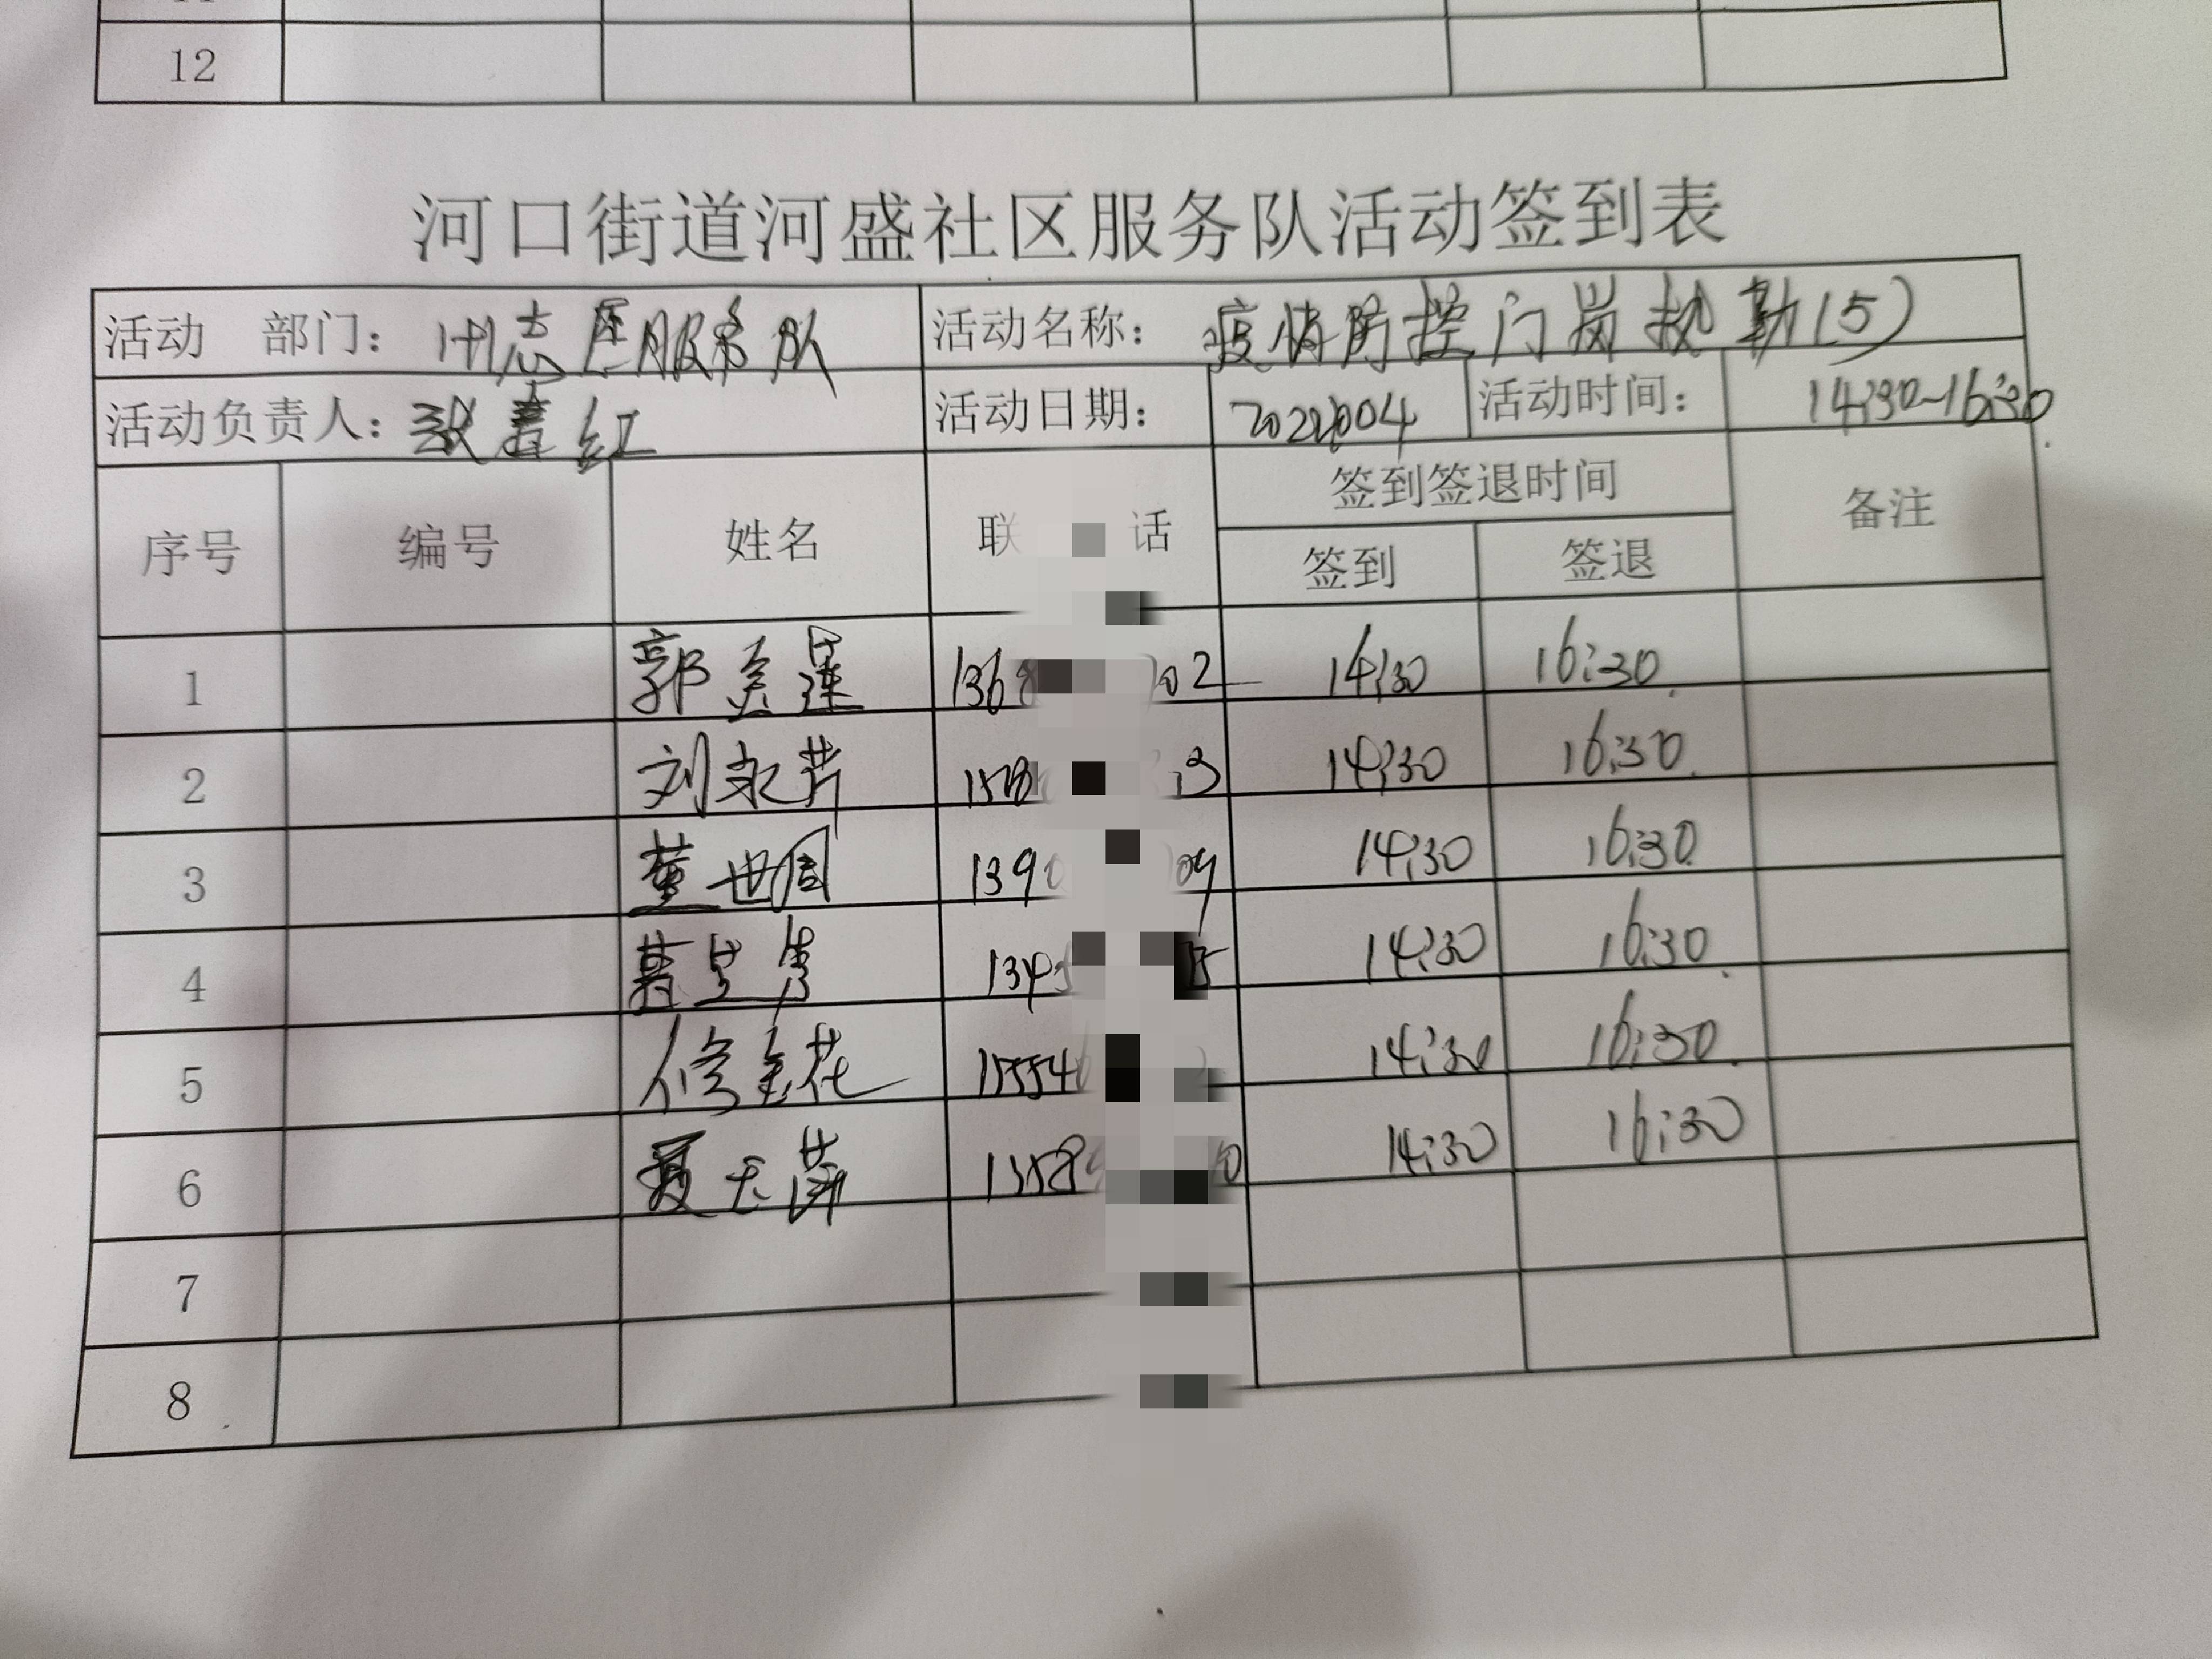 12
河口街道河盛社区服务队活动签到表
活动 部门： 志愿服务队 活动名称： 疫情防控门岗执勤(5)
活动负责人： 红 活动日期： 活动时间： 14:30-16:30
序号 编号 姓名 联 话 签到签退时间 备注
签到 签退
1 郭美莲 136 02 14:30 16:30
2 刘永芹 13 14:30 16:30
3 董世周 139 09 14:30 16:30
4 134 14:30 16:30
5 修金花 15554 14:30 16:30
6 夏玉萍 1358 0 14:30 16:30
7
8